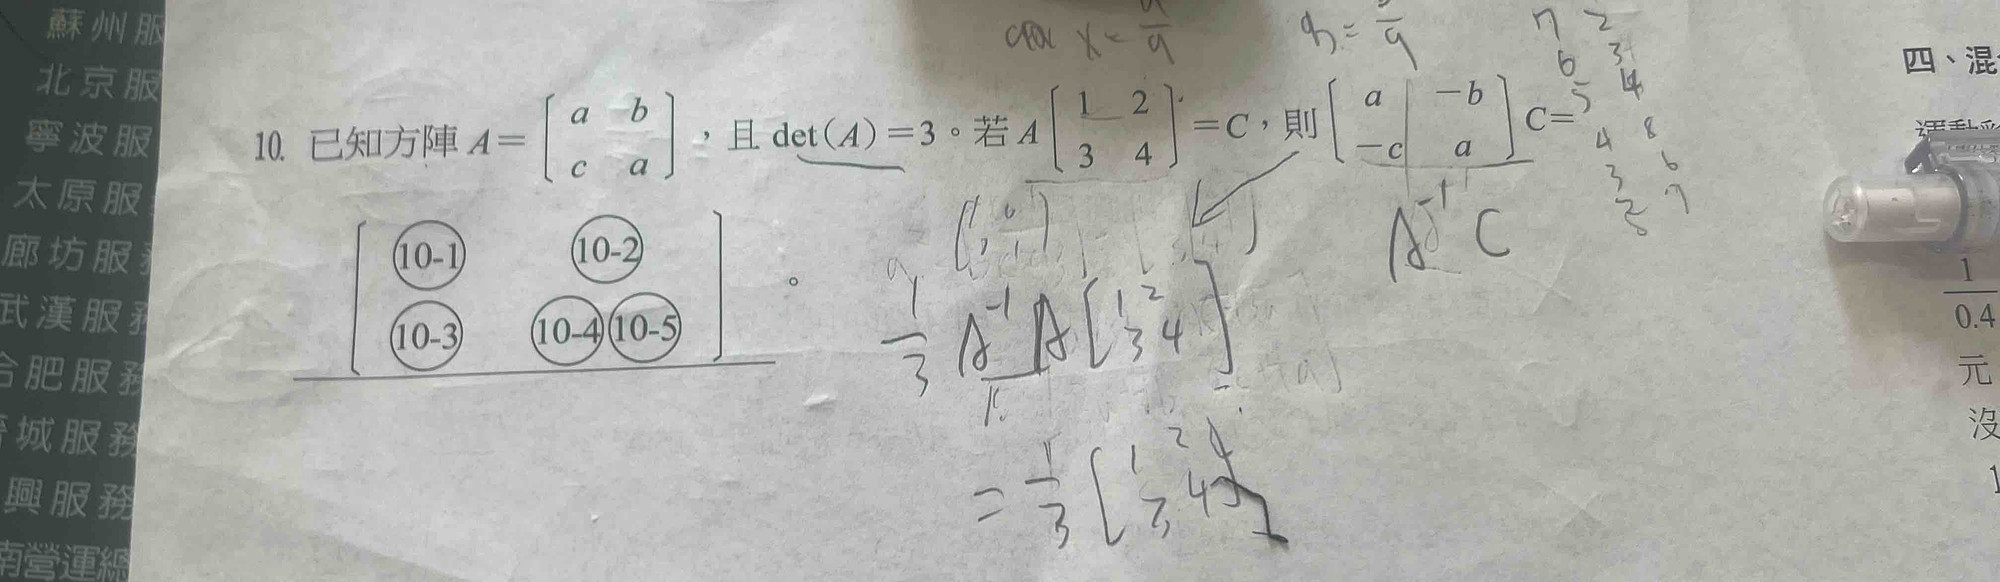 蘇州服
北京服
寧波服
太原服
廊坊服
武漢服務
合肥服務
城服務
興服務
南營運總
10. 已知方陣 A = [ a b ; c a ]，且 det(A) = 3。若 A [ 1 2 ; 3 4 ] = C，則 [ a -b ; -c a ] C =
[ 10-1 10-2
10-3 10-4 10-5 ] 。
A⁻¹ C
1/3 A⁻¹ A [ 1 2 ; 3 4 ]
= 1/3 [ 1 2 ; 3 4 ]
7 2
6 3
5 4
4 8
3 6
2 7
四、混
1/0.4
元
沒